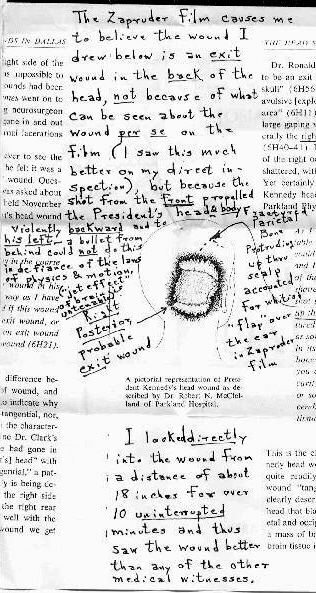 The Zapruder Film causes me
to believe the wound I
drew below is an exit
wound in the back of the
head, not because of what
can be seen about the
wound per se on the
film (I saw this much
better on my direct in-
spection), but because the
shot from the front propelled
the President's head & body
Violently backward and to
his left – a bullet from
behind could not do this
in defiance of the laws
of physics & motion.
Right
Posterior
probable
exit wound
Fractured
Parietal
Bone
Protruding
up thru
scalp
accounted
for white
"flap" over
the ear
in Zapruder
Film
A pictorial representation of Presi-
dent Kennedy's head wound as de-
scribed by Dr. Robert N. McClel-
land of Parkland Hospital.
I looked directly
into the wound from
a distance of about
18 inches for over
10 uninterrupted
minutes and thus
saw the wound better
than any of the other
medical witnesses.
DS IN DALLAS
ight side of the
as impossible to
ounds had been
mas went on to
g neurosurgeon
gone in and out
ever to see the
he felt it was a
wound. Once
held November
t's head wound
way as I have
if this wound
exit wound, or
en exit wound
wound (6H21).
difference be-
of wound, and
o indicate why
tangential, nor,
the character-
ne Dr. Clark's
e had gone in
's] head" with
gential," a pat-
y is being de-
the right side
the right rear
well with the
wound we get
THE HEAD
Dr. Ronald
to be an exit
skull" (6H56
avulsive [explo
area" (6H11)
large gaping
erally the righ
(6H40-41)
of the right oc
shattered, with
Yet certainly
Kennedy head
Parkland Phy
This is the c
nedy head w
quite readily
wound "tang
clearly descr
head that bla
etal and occip
a mass of b
brain tissue i